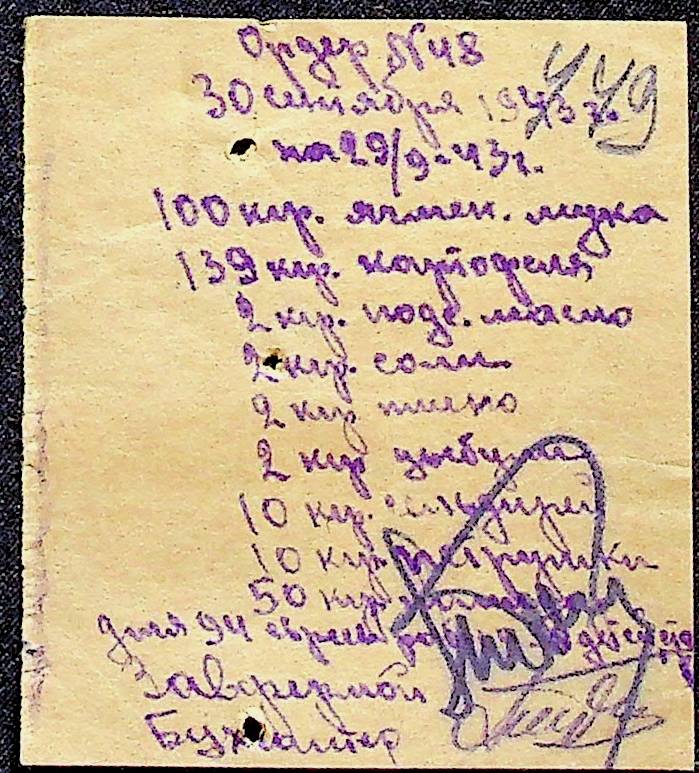 Ордер №48
449
30 сентября 1943 г.
на 29/9-43г.
100 кгр. ячмен.
139 кгр. картофеля
2 кгр. подс. масло
2 кгр. соли
2 кгр пшено
2 кгр цыбули
10 кгр.
10 кгр. петрушки
50 кгр.
для 94 евреев
Завфермой
Бухгалтер